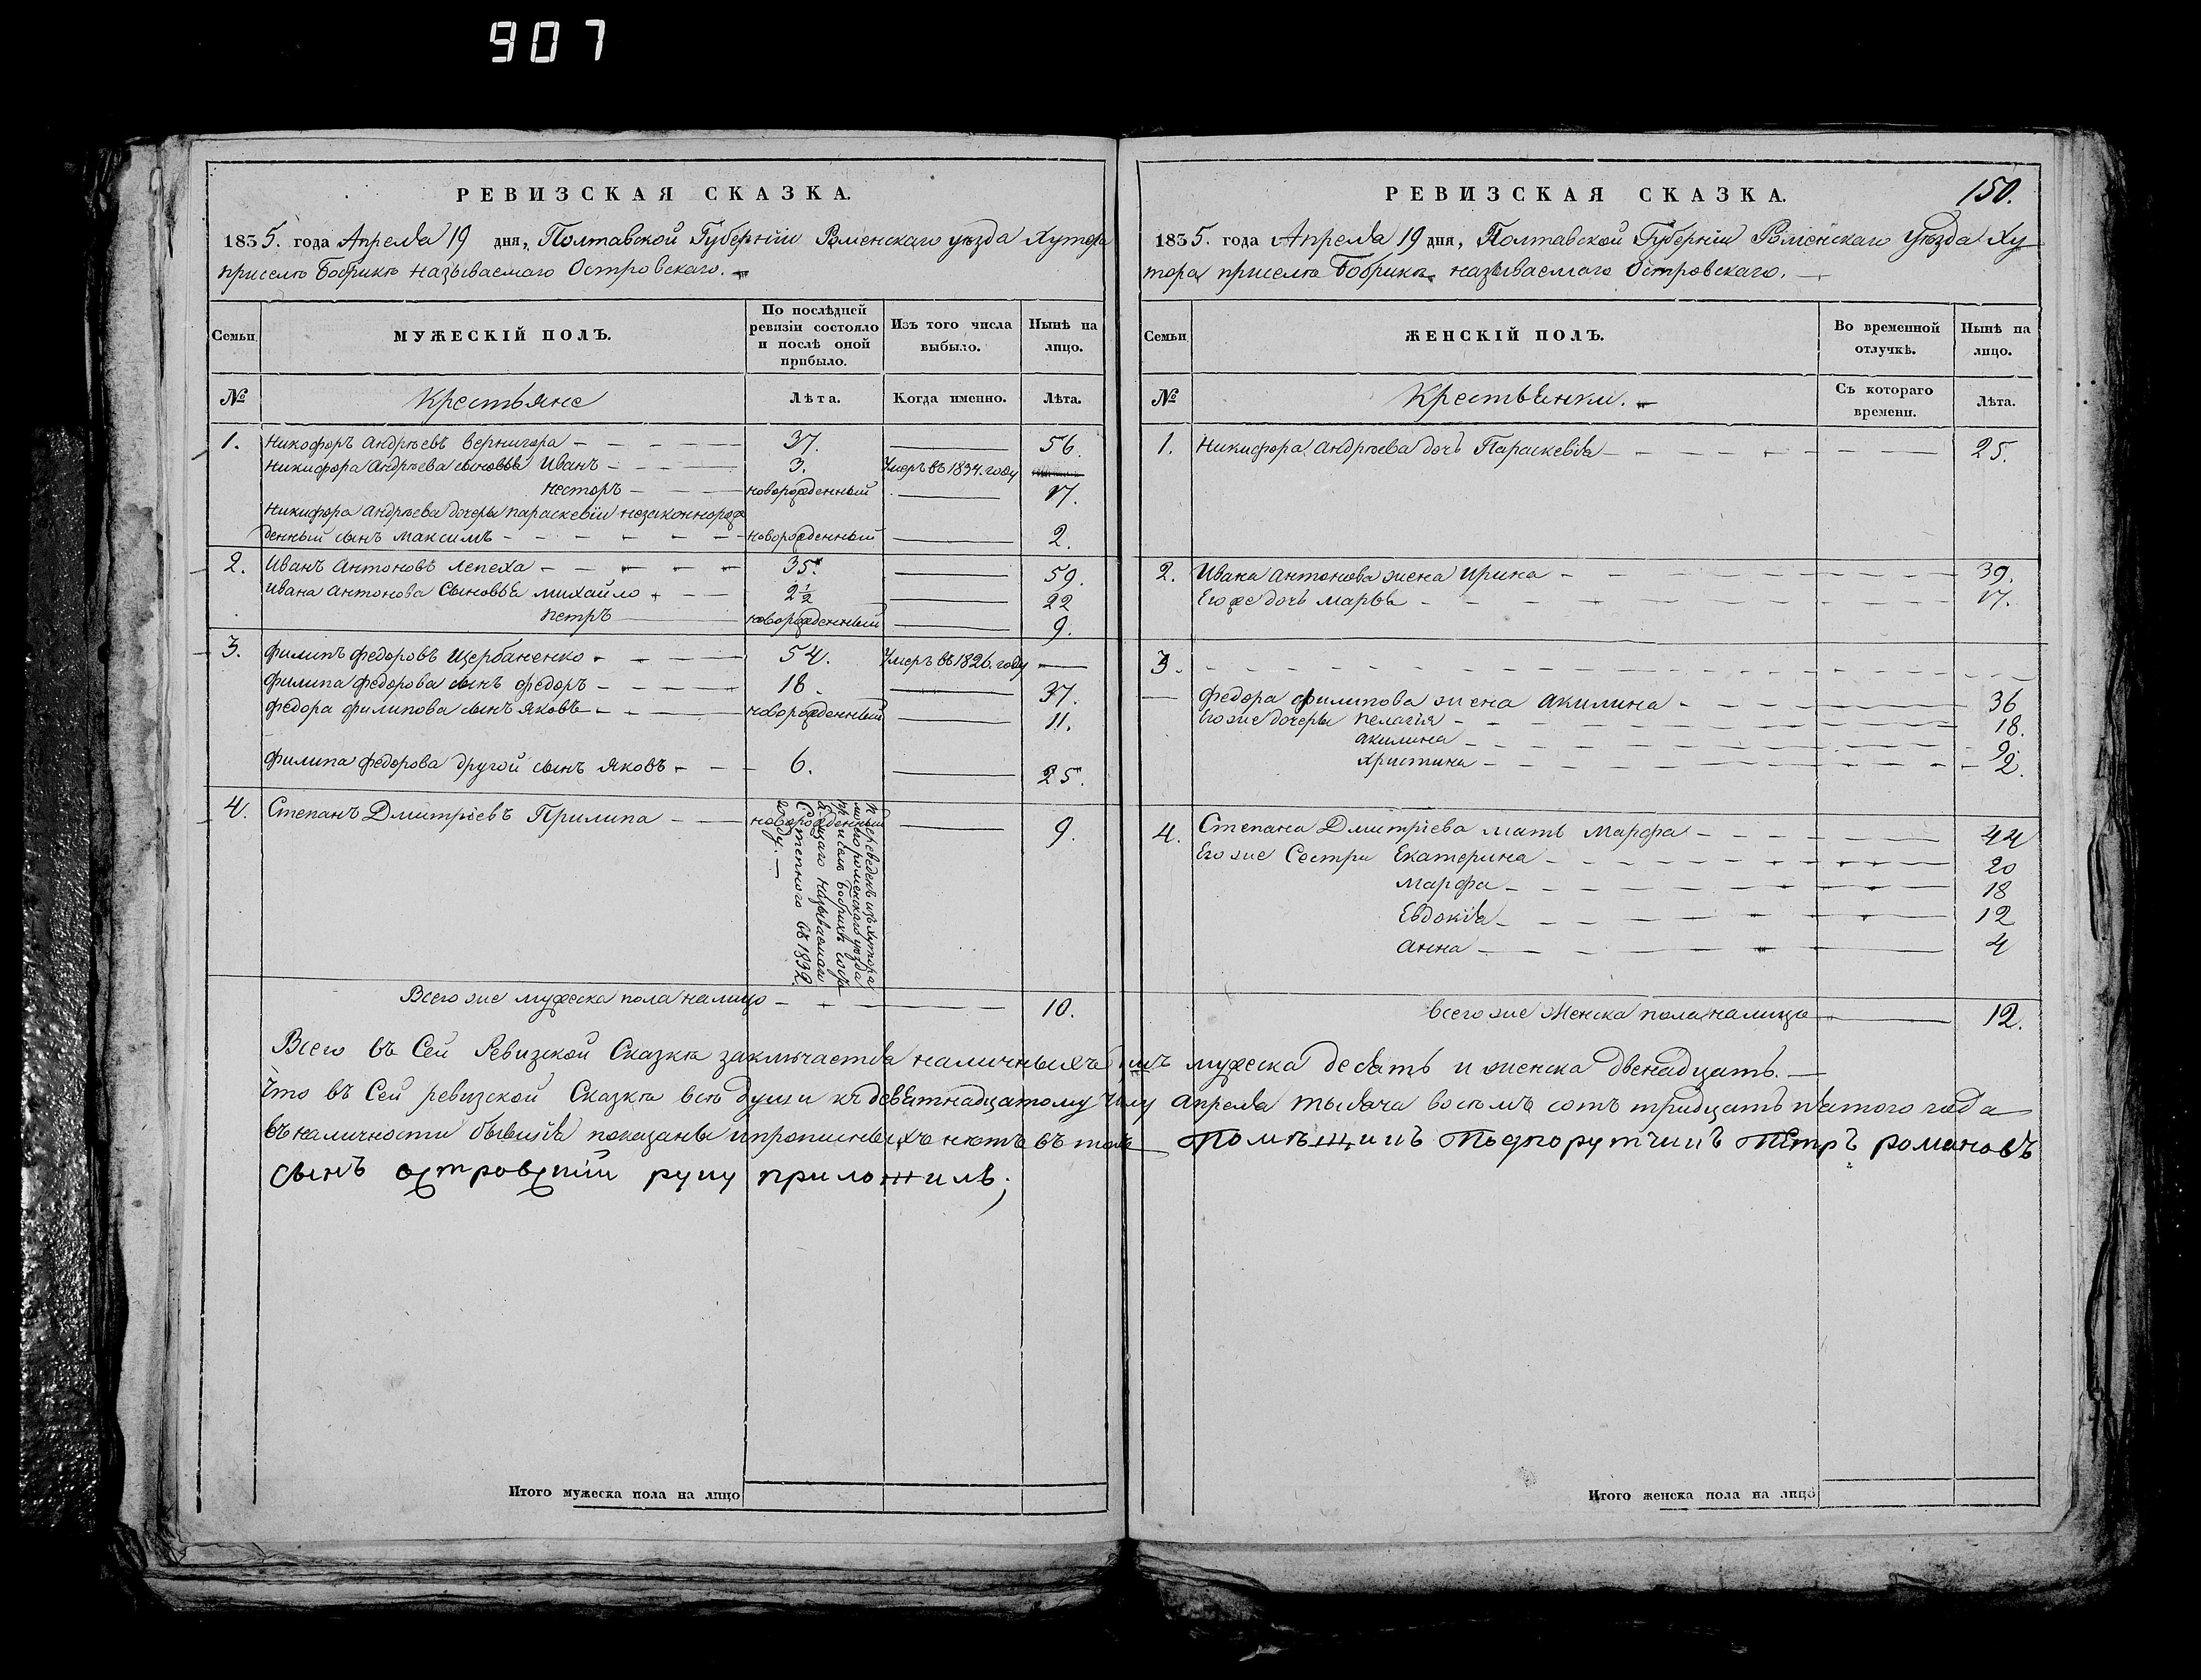 907
РЕВИЗСКАЯ СКАЗКА.
1835. года Апреля 19 дня, Полтавской Губерніи Роменскаго уезда Хутора
приселѣ Бобрикѣ называемаго Островскаго.
Семьи
МУЖЕСКІЙ ПОЛЪ.
По послѣдней ревизіи состояло и послѣ оной прибыло.
Изъ того числа выбыло.
Нынѣ на лицо.
№
Крестьяне
Лѣта.
Когда именно.
Лѣта.
1. Никофоръ Андрѣевъ Вернигора 37. 56.
Никифора Андрѣева сыновья Иванъ 3. Умеръ въ 1834. году
Несторъ новорожденный 17.
Никифора Андрѣева дочеры Параскевіи незаконнорож
денный сынъ Максимъ новорожденный 2.
2. Иванъ Антоновъ Лепеха 35. 59.
Ивана Антонова Сыновья Михайло 2 1/2 22
Петръ новорожденный 9.
3. Филипъ Федоровъ Щербаненко 54. Умеръ въ 1826. году
Филипа Федорова сынъ Федоръ 18. 37.
Федора Филипова сынъ Яковъ новорожденный 11.
Филипа Федорова другой сынъ Яковъ 6. 25.
4. Степанъ Дмитріевъ Прилипа новорожденный 9.
Переведенъ изъ хутора
Роменскаго уезда
при селѣ Бобрикѣ
называемаго
Степного въ 1832
году.
Всего же мужеска пола налицо 10.
Всего въ Сей Ревизской Сказкѣ заключается наличныхъ
Что въ Сей ревизской Сказкѣ всѣ души къ девятнадцатому числу
въ наличности бывшія показаны и прописныхъ нѣтъ въ томъ
сынъ островскій руку приложилъ;
Итого мужеска пола на лицо
РЕВИЗСКАЯ СКАЗКА.
150.
1835. года Апреля 19 дня, Полтавской Губерніи Роменскаго Уѣзда Ху
тора приселѣ Бобрикѣ называемаго Островскаго.
Семьи
ЖЕНСКІЙ ПОЛЪ.
Во временной отлучкѣ.
Нынѣ на лицо.
№
Крестьянки.
Съ котораго времени.
Лѣта.
1. Никифора Андрѣева дочь Параскевія 25.
2. Ивана Антонова жена Ирина 39.
Его же дочь Марья 17.
3.
Федора Филипова жена Акилина 36
Его же дочеры Пелагія 18.
Акилина 9.
Христина 2.
4. Степана Дмитріева мать Марфа 44
Его же Сестри Екатерина 20
Марфа 18
Евдокія 12
Анна 4
всего же Женска пола налицо 12.
мужеска десять и женска двенадцать.
Апреля тысяча восемъ сотъ тридцать пятого года
Помѣщикъ Подпорутчикъ Пётръ романовъ
Итого женска пола на лицо